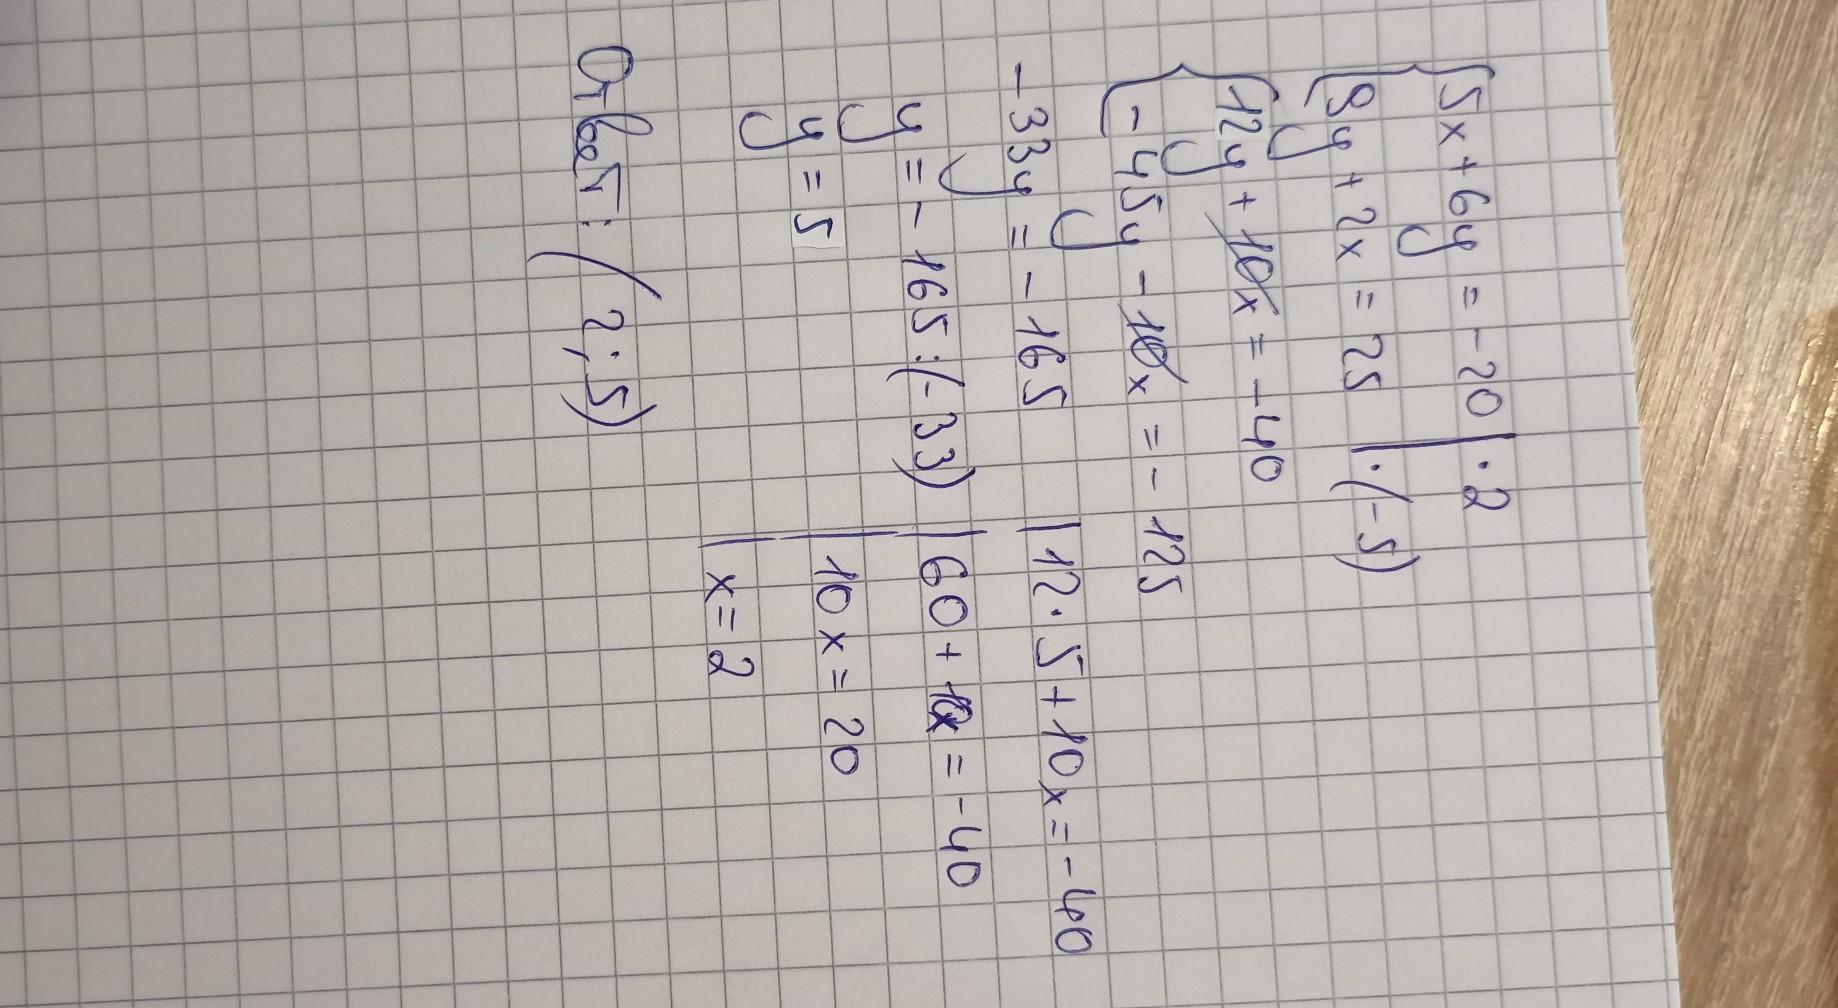 5x + 6y = -20 | · 2
9y + 2x = 25 | · (-5)
12y + 10x = -40
-45y - 10x = -125
-33y = -165
y = -165 : (-33)
y = 5
| 12 · 5 + 10x = -40
| 60 + 10x = -40
| 10x = 20
| x = 2
Ответ: (2; 5)